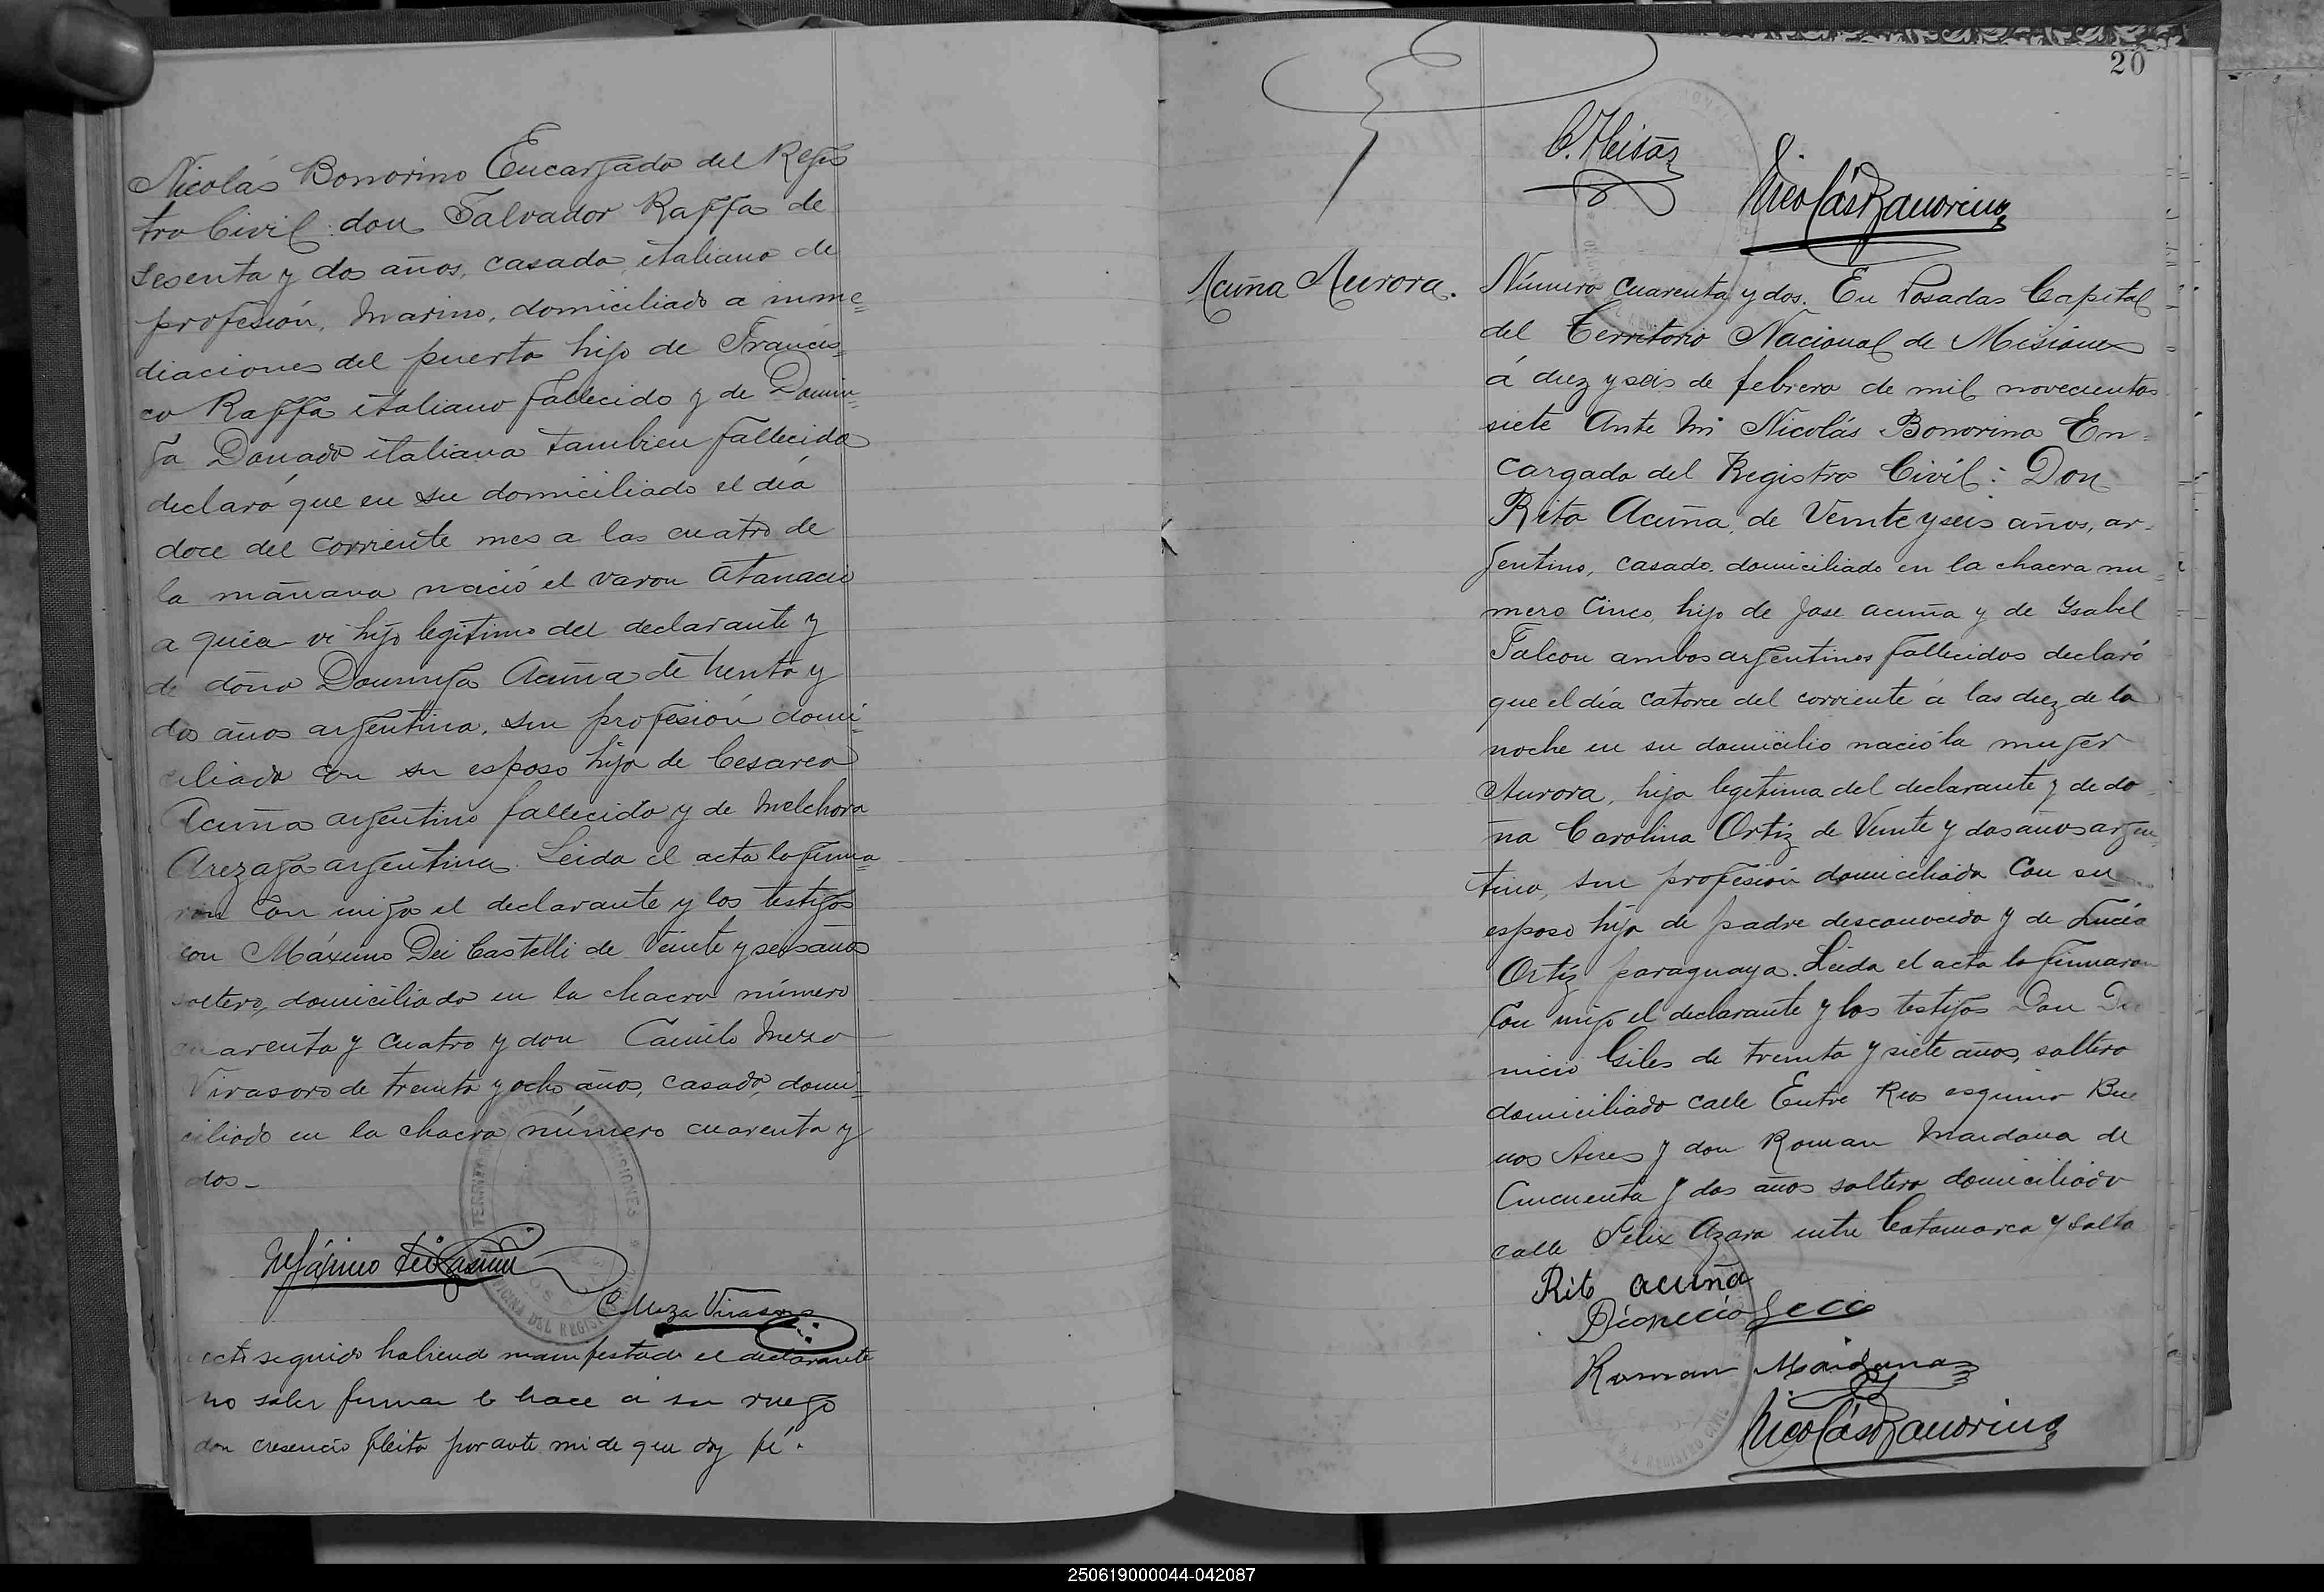 Nicolás Bonorino Encargado del Regis
tro Civil: don Salvador Raffa de
sesenta y dos años, casado, italiano de
profesión, Marino, domiciliado a inme=
diaciones del puerto hijo de Francis=
co Raffa italiano fallecido y de Domin=
ga Donado italiana tambien fallecida
declaró que en su domiciliado el día
doce del corriente mes a las cuatro de
la mañana nació el varon Atanacio
a quien vi hijo legítimo del declarante y
de doña Dominga Acuña de trenta y
dos años argentina, sin profesión domi=
ciliada con su esposo hija de Cesareo
Acuña argentino fallecido y de Melchora
Arezaga argentina. Leida el acta la firma=
ron con migo el declarante y los testigos
con Máximo Dei Castelli de Veinte y seis años
soltero, domiciliado en la chacra número
cuarenta y cuatro y don Camilo Meza
Virasoro de treinta y ocho años, casado, domi=
ciliado en la chacra número cuarenta y
dos _
TERRITORIO NACIONAL DE MISIONES
OFICINA DEL REGISTRO
C Meza Virasoro
acto seguido habiend manifestado el declarante
no saber firmar lo hace a su ruego
don cresencio fleita por ante mi de que doy fé.
20
Nicolás Bonorino
Acuña Aurora.
Número cuarenta y dos. En Posadas Capital
del Territorio Nacional de Misiones
á diez y seis de febrero de mil novecientos
siete Ante Mi Nicolás Bonorino En=
cargado del Registro Civil: Don
Rito Acuña, de Veinte y seis años, ar=
gentino, casado, domiciliado en la chacra nu=
mero Cinco, hijo de Jose acuña y de Ysabel
Falcon ambos argentinos fallecidos declaró
que el día catorce del corriente á las diez de la
noche en su domicilio nació la muger
Aurora, hija legitima del declarante y de do
ña Carolina Ortiz de Veinte y dos años argen=
tina, sin profesión domiciliada Con su
esposo hija de padre desconocido y de Lucia
Ortiz paraguaya. Leida el acta la firmaron
Con migo el declarante y los testigos Don Dio
nicio Giles de treinta y siete años, soltero
domiciliado calle Entre Rios esquina Bue
nos Aires y don Roman Maidana de
Cincuenta y dos años soltero domiciliado
calle Felix Azara entre Catamarca y Salta
Rito acuña
Dionicio
Roman Maidana
Nicolás Bonorino
REGISTRO CIVIL
250619000044-042087